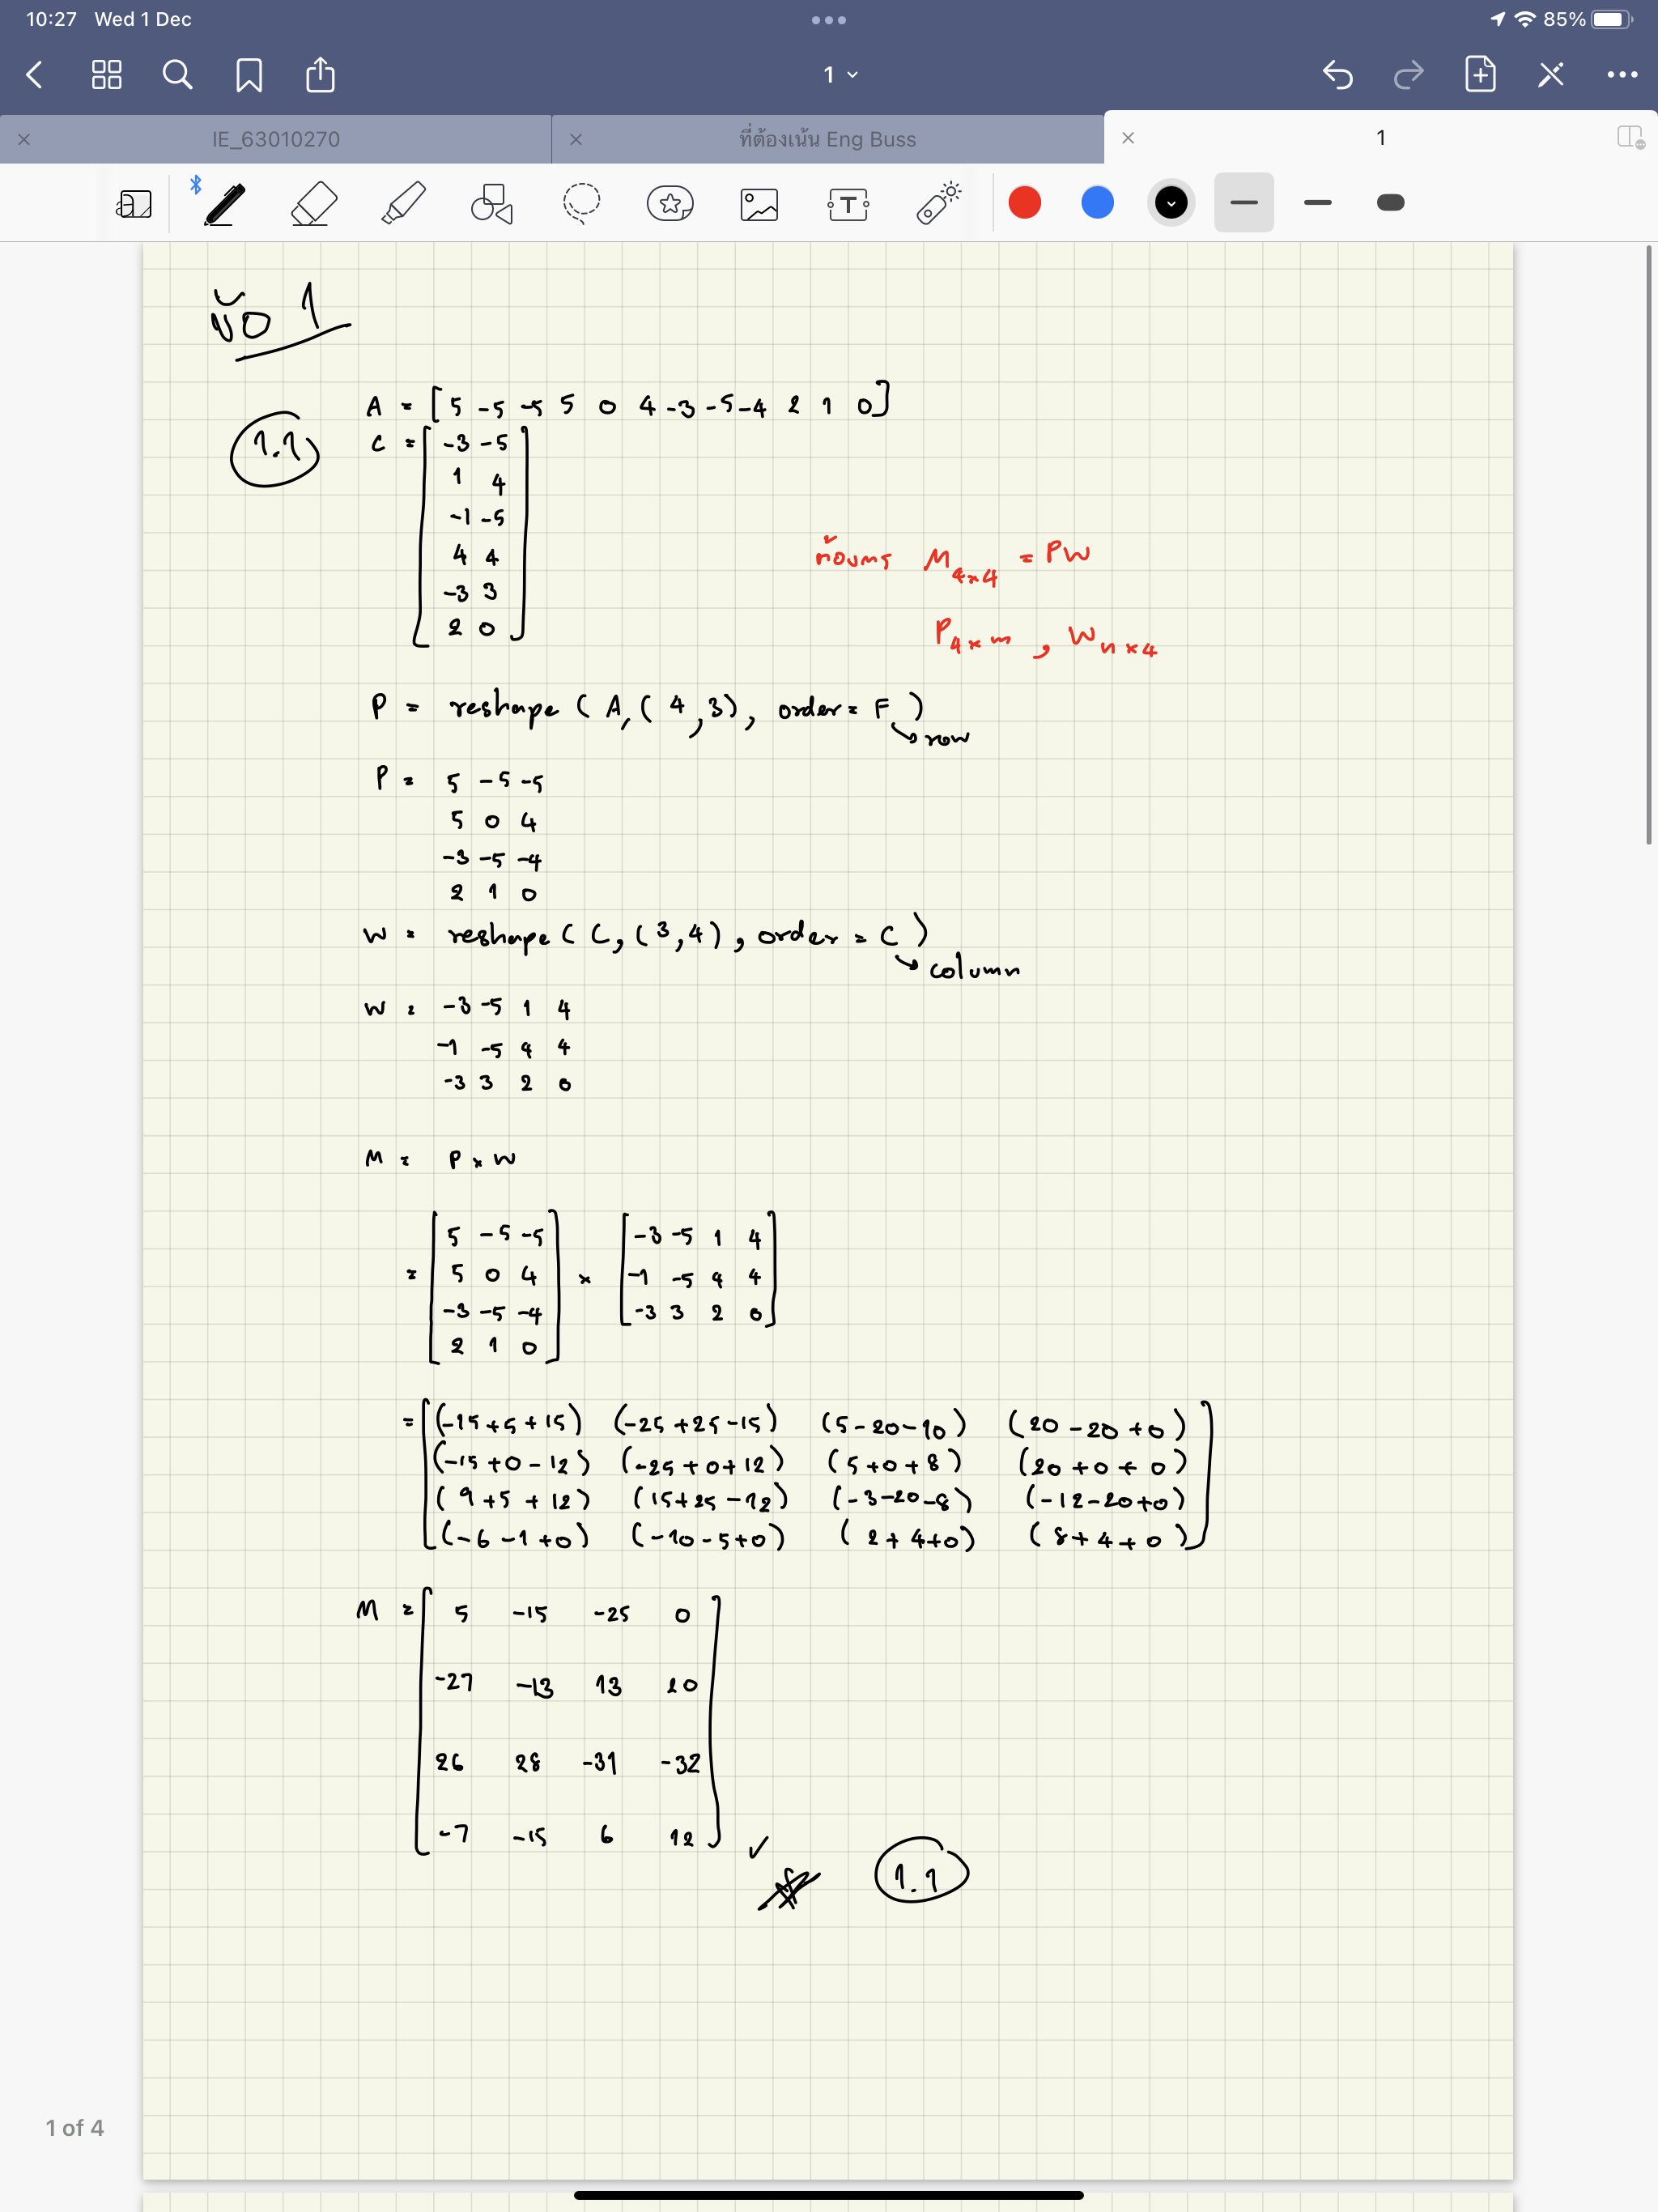 10:27 Wed 1 Dec
85%
1
IE_63010270
ที่ต้องเน้น Eng Buss
1
ข้อ 1
1.1
A = [5 -5 -5 5 0 4 -3 -5 -4 2 1 0]
C = [-3 -5
1 4
-1 -5
4 4
-3 3
2 0]
ต้องการ M4×4 = PW
P4×m , Wn×4
P = reshape ( A, ( 4 ,3), order = F )
row
P = 5 -5 -5
5 0 4
-3 -5 -4
2 1 0
W = reshape ( C, ( 3,4), order = C )
column
W = -3 -5 1 4
-1 -5 4 4
-3 3 2 0
M = P × W
= [5 -5 -5
5 0 4
-3 -5 -4
2 1 0] × [-3 -5 1 4
-1 -5 4 4
-3 3 2 0]
= [(-15+5+15) (-25+25-15) (5-20-10) (20-20+0)
(-15+0-12) (-25+0+12) (5+0+8) (20+0+0)
(9+5+12) (15+25-12) (-3-20-8) (-12-20+0)
(-6-1+0) (-10-5+0) (2+4+0) (8+4+0)]
M = [5 -15 -25 0
-27 -13 13 20
26 28 -31 -32
-7 -15 6 12]
1.1
1 of 4